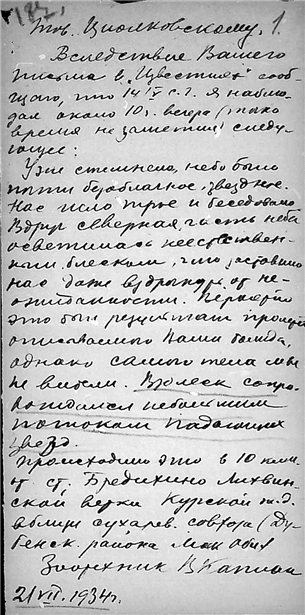 Тов. Циолковскому. 1.
Вследствие Вашего
письма в "Известиях" сооб-
щаю, что 14/IV с.г. я наблю-
дал около 10 ч. вечера (точно
время не заметил) следу-
ющее:
Уже стемнело, небо было
почти безоблачное, звездное.
Нас шло трое и беседовали
Вдруг северная часть неба
осветилась неестествен-
ным блеском, что заставило
нас даже вздрогнуть от не-
ожиданности.
это был результат
описываемого Вами болида,
однако самого тела мы
не видели. Всплеск сопро-
вождался небольшим
потоком падающих
звезд.
Происходило это в 10 клм.
от ст. Бредихино Лихвин-
ской ветки Курской ж.д.
вблизи сухарев. совхоза (Ду-
бенск. района Моск. обл.
Зоотехник В Каплан
21/VII. 1934 г.